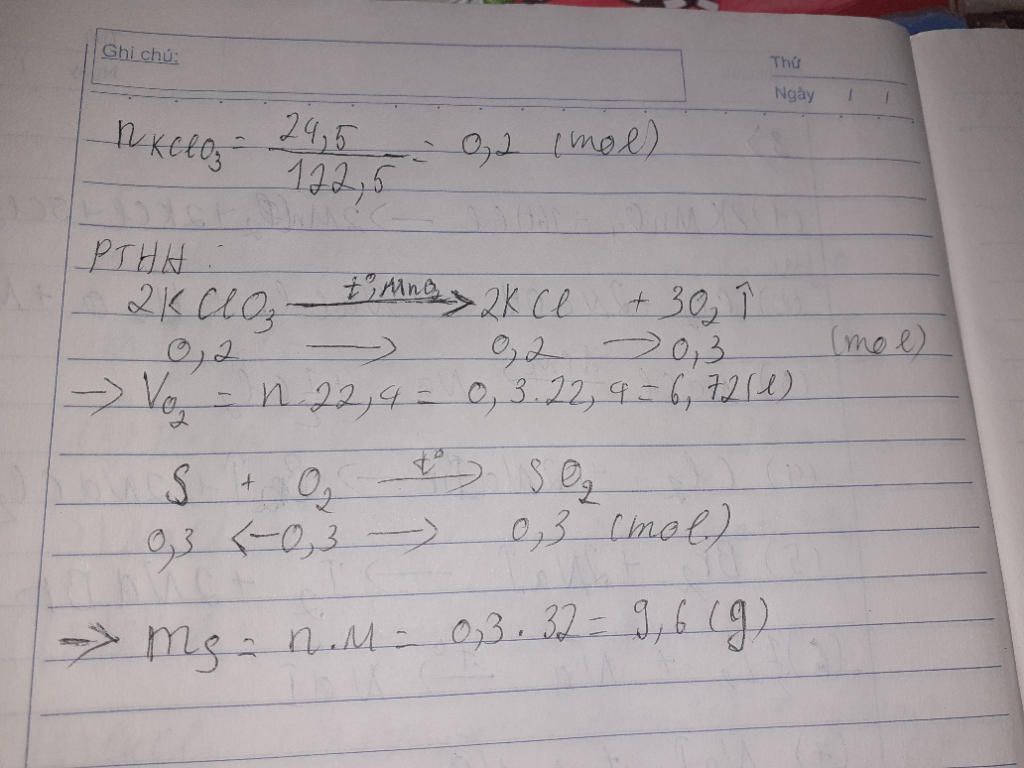 Ghi chú:
Thứ
Ngày / /
nKClO₃ = 24,5 / 122,5 = 0,2 (mol)
PTHH :
2KClO₃ —t°, MnO₂→ 2KCl + 3O₂↑
0,2 → 0,2 → 0,3 (mol)
→ VO₂ = n.22,4 = 0,3.22,4 = 6,72(l)
S + O₂ —t°→ SO₂
0,3 ← 0,3 → 0,3 (mol)
⇒ mS = n.M = 0,3.32 = 9,6 (g)